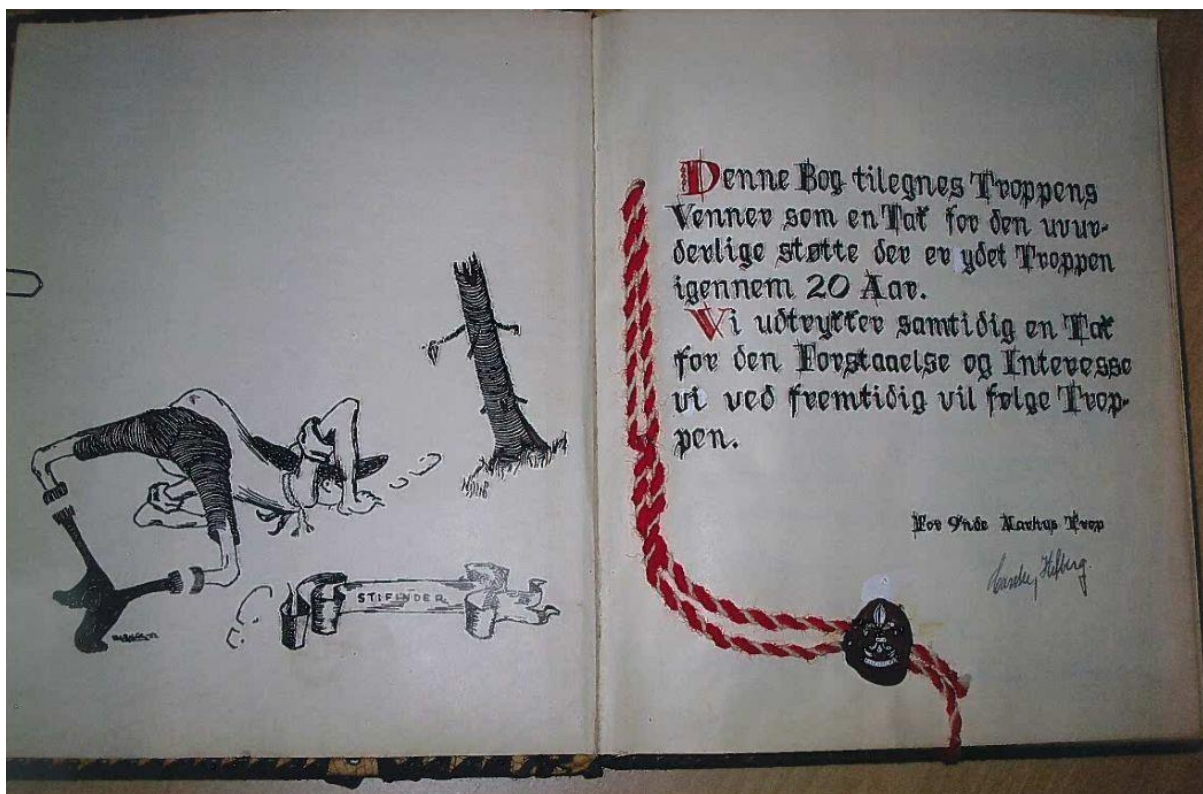 STIFINDER
Denne Bog tilegnes Troppens
Venner som en Tak for den uvur-
derlige støtte der er ydet Troppen
igennem 20 Aar.
Vi udtrykker samtidig en Tak
for den Forstaaelse og Interesse
vi ved fremtidig vil følge Trop-
pen.
For 9'nde Aarhus Trop